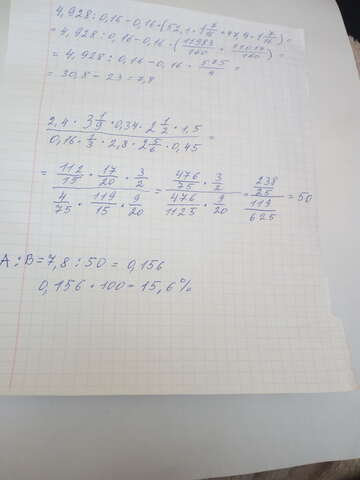 4,928 : 0,16 - 0,16 · (52,1 · 1 7/16 + 47,9 · 1 7/16) =
= 4,928 : 0,16 - 0,16 · (11983/160 + 11017/160) =
= 4,928 : 0,16 - 0,16 · 575/4 =
= 30,8 - 23 = 7,8
2,4 · 3 1/9 · 0,34 · 2 1/2 · 1,5
0,16 · 1/3 · 2,8 · 2 5/6 · 0,45 =
= 112/15 · 17/20 · 3/2 / 4/75 · 119/15 · 9/20 = 476/75 · 3/2 / 476/1125 · 9/20 = 238/25 / 119/625 = 50
A : B = 7,8 : 50 = 0,156
0,156 · 100 = 15,6 %